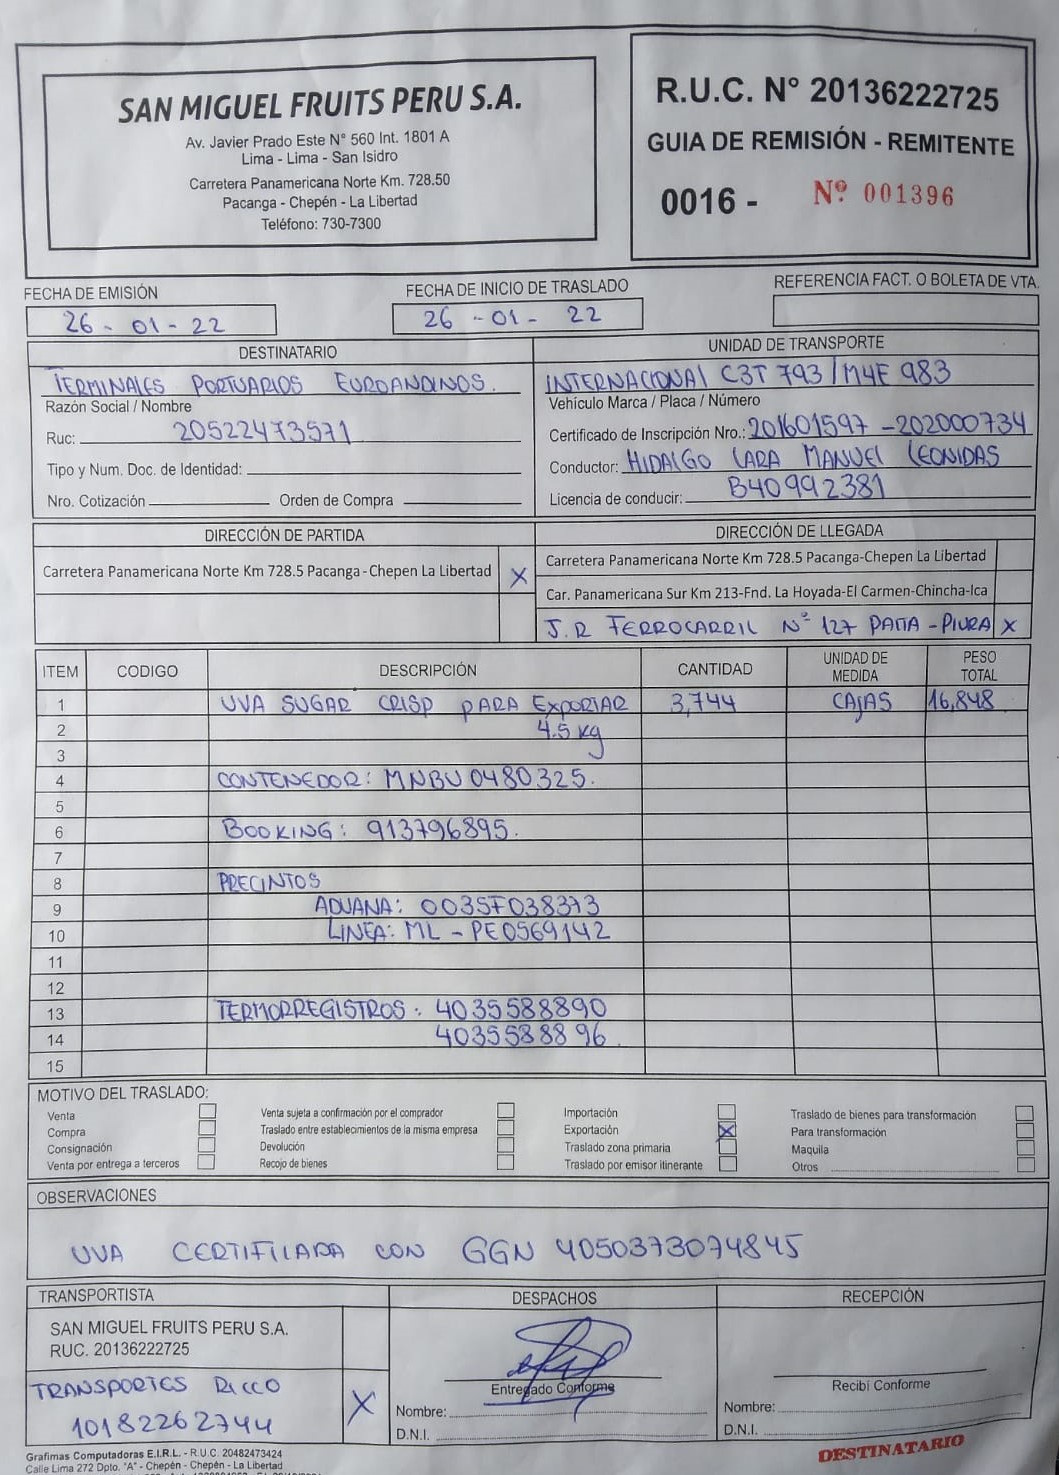 SAN MIGUEL FRUITS PERU S.A.
Av. Javier Prado Este N° 560 Int. 1801 A
Lima - Lima - San Isidro
Carretera Panamericana Norte Km. 728.50
Pacanga - Chepén - La Libertad
Teléfono: 730-7300
R.U.C. N° 20136222725
GUIA DE REMISIÓN - REMITENTE
0016 - Nº 001396
FECHA DE EMISIÓN
26 - 01 - 22
FECHA DE INICIO DE TRASLADO
26 - 01 - 22
REFERENCIA FACT. O BOLETA DE VTA.
DESTINATARIO
TERMINALES PORTUARIOS EUROANDINOS.
Razón Social / Nombre
Ruc: 20522473571
Tipo y Num. Doc. de Identidad:
Nro. Cotización Orden de Compra
UNIDAD DE TRANSPORTE
INTERNACIONAL C3T 793 / M4E 983
Vehículo Marca / Placa / Número
Certificado de Inscripción Nro.: 201601597 - 202000734
Conductor: HIDALGO LARA MANUEL LEONIDAS
Licencia de conducir: B40992381
DIRECCIÓN DE PARTIDA
Carretera Panamericana Norte Km 728.5 Pacanga - Chepen La Libertad X
DIRECCIÓN DE LLEGADA
Carretera Panamericana Norte Km 728.5 Pacanga-Chepen La Libertad
Car. Panamericana Sur Km 213-Fnd. La Hoyada-El Carmen-Chincha-Ica
J.R FERROCARRIL Nº 127 PAITA - PIURA X
ITEM CODIGO DESCRIPCIÓN CANTIDAD UNIDAD DE MEDIDA PESO TOTAL
1 UVA SUGAR CRISP PARA EXPORTAR 3,744 CAJAS 16,848
2 4.5 kg
3
4 CONTENEDOR: MNBU 0480325.
5
6 BOOKING: 913796895.
7
8 PRECINTOS
9 ADUANA: 0035F038373
10 LINEA: ML - PE0569142
11
12
13 TERMORREGISTROS: 4035588890
14 4035588896.
15
MOTIVO DEL TRASLADO:
Venta
Compra
Consignación
Venta por entrega a terceros
Venta sujeta a confirmación por el comprador
Traslado entre establecimientos de la misma empresa
Devolución
Recojo de bienes
Importación
Exportación X
Traslado zona primaria
Traslado por emisor itinerante
Traslado de bienes para transformación
Para transformación
Maquila
Otros
OBSERVACIONES
UVA CERTIFICADA CON GGN 4050373074845
TRANSPORTISTA
SAN MIGUEL FRUITS PERU S.A.
RUC. 20136222725
TRANSPORTES RICCO X
10182262744
DESPACHOS
Entregado Conforme
Nombre:
D.N.I.
RECEPCIÓN
Recibi Conforme
Nombre:
D.N.I.
DESTINATARIO
Grafimas Computadoras E.I.R.L. - R.U.C. 20482473424
Calle Lima 272 Dpto. "A" - Chepén - Chepén - La Libertad